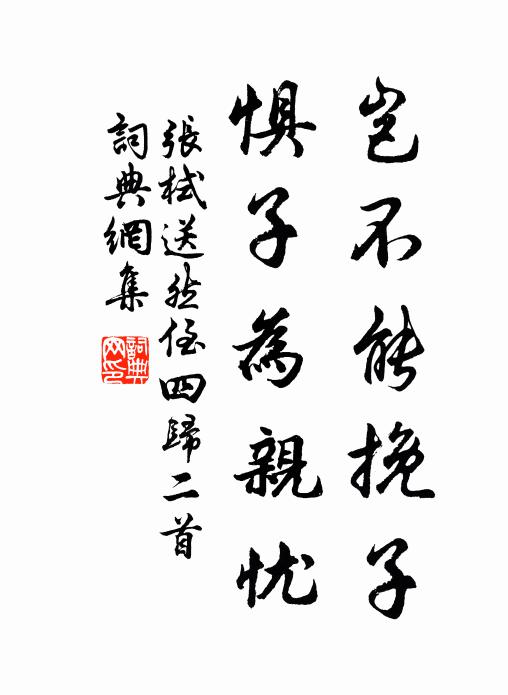 豈不能挽子
惧子為親忧
張栻送然侄四歸二首
詞典網集
詞典网印